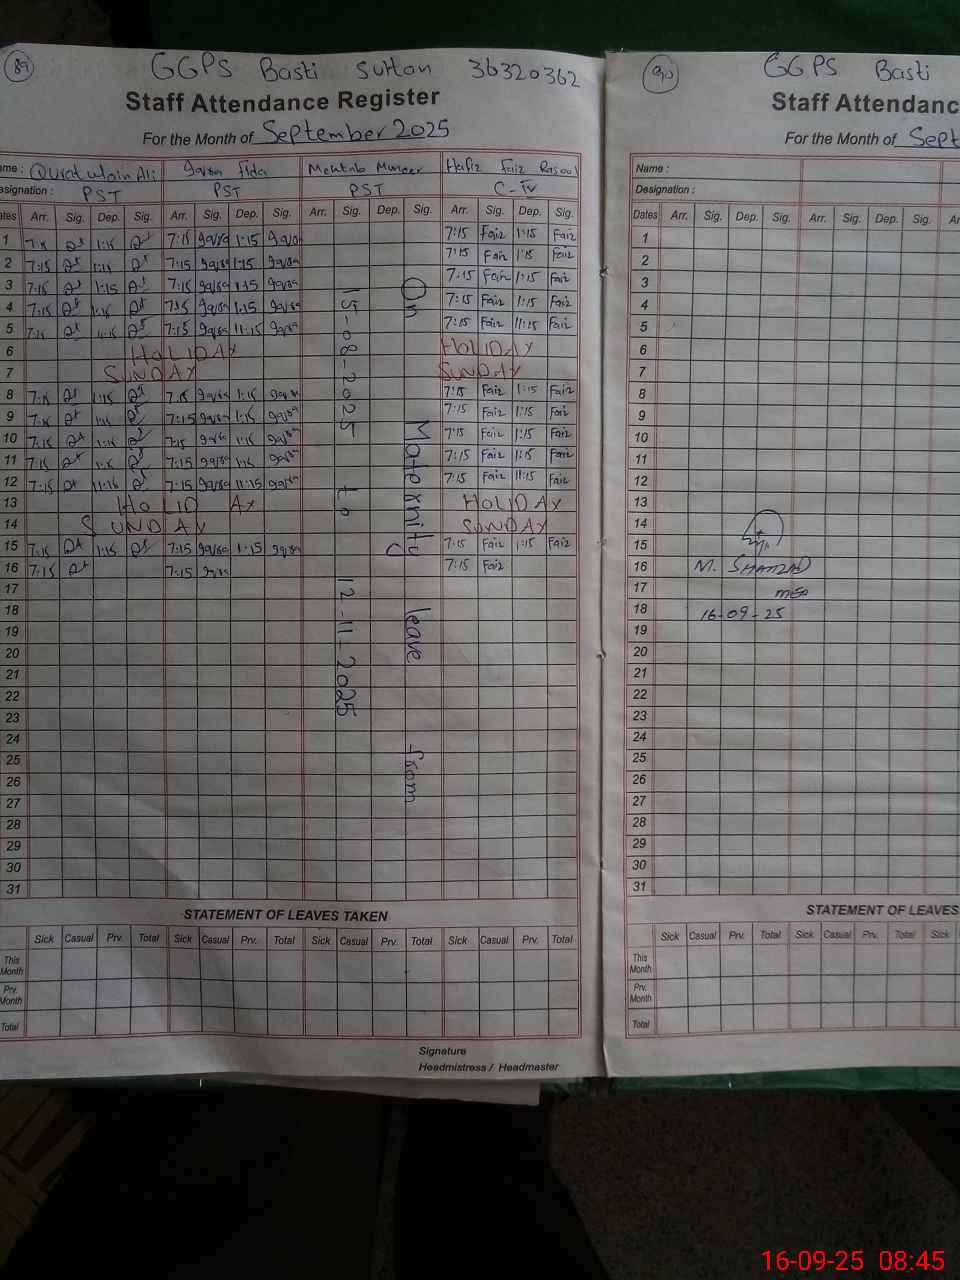 89
GGPS Basti Sultan 36320362
Staff Attendance Register
For the Month of September 2025
ame : Quratulain Ali Iqra Fida Mehtab Muneer Hafiz Faiz Rasool
signation : PST PST PST C-IV
ates Arr. Sig. Dep. Sig. Arr. Sig. Dep. Sig. Arr. Sig. Dep. Sig. Arr. Sig. Dep. Sig.
1 7:15 1:15 7:15 1:15 7:15 Faiz 1:15 Faiz
2 7:15 1:15 7:15 1:15 7:15 Faiz 1:15 Faiz
3 7:15 1:15 7:15 1:15 7:15 Faiz 1:15 Faiz
4 7:15 1:15 7:15 1:15 7:15 Faiz 1:15 Faiz
5 7:15 11:15 7:15 11:15 7:15 Faiz 11:15 Faiz
6 HOLIDAY HOLIDAY
7 SUNDAY SUNDAY
8 7:15 1:15 7:15 1:15 7:15 Faiz 1:15 Faiz
9 7:15 1:15 7:15 1:15 7:15 Faiz 1:15 Faiz
10 7:15 1:15 7:15 1:15 7:15 Faiz 1:15 Faiz
11 7:15 1:15 7:15 1:15 7:15 Faiz 1:15 Faiz
12 7:15 11:15 7:15 11:15 7:15 Faiz 11:15 Faiz
13 HOLIDAY HOLIDAY
14 SUNDAY SUNDAY
15 7:15 1:15 7:15 1:15 7:15 Faiz 1:15 Faiz
16 7:15 7:15 7:15 Faiz
17
18
19
20
21
22
23
24
25
26
27
28
29
30
31
On Maternity leave from
15-08-2025 to 12-11-2025
STATEMENT OF LEAVES TAKEN
Sick Casual Prv. Total Sick Casual Prv. Total Sick Casual Prv. Total Sick Casual Prv. Total
This Month
Prv. Month
Total
Signature
Headmistress / Headmaster
90
GGPS Basti
Staff Attendanc
For the Month of Sept
Name :
Designation :
Dates Arr. Sig. Dep. Sig. Arr. Sig. Dep. Sig. Ar
1
2
3
4
5
6
7
8
9
10
11
12
13
14
15
16 M. SHAHZAD
17 MEA
18 16-09-25
19
20
21
22
23
24
25
26
27
28
29
30
31
STATEMENT OF LEAVES
Sick Casual Prv. Total Sick Casual Prv. Total Sick
This Month
Prv. Month
Total
16-09-25 08:45